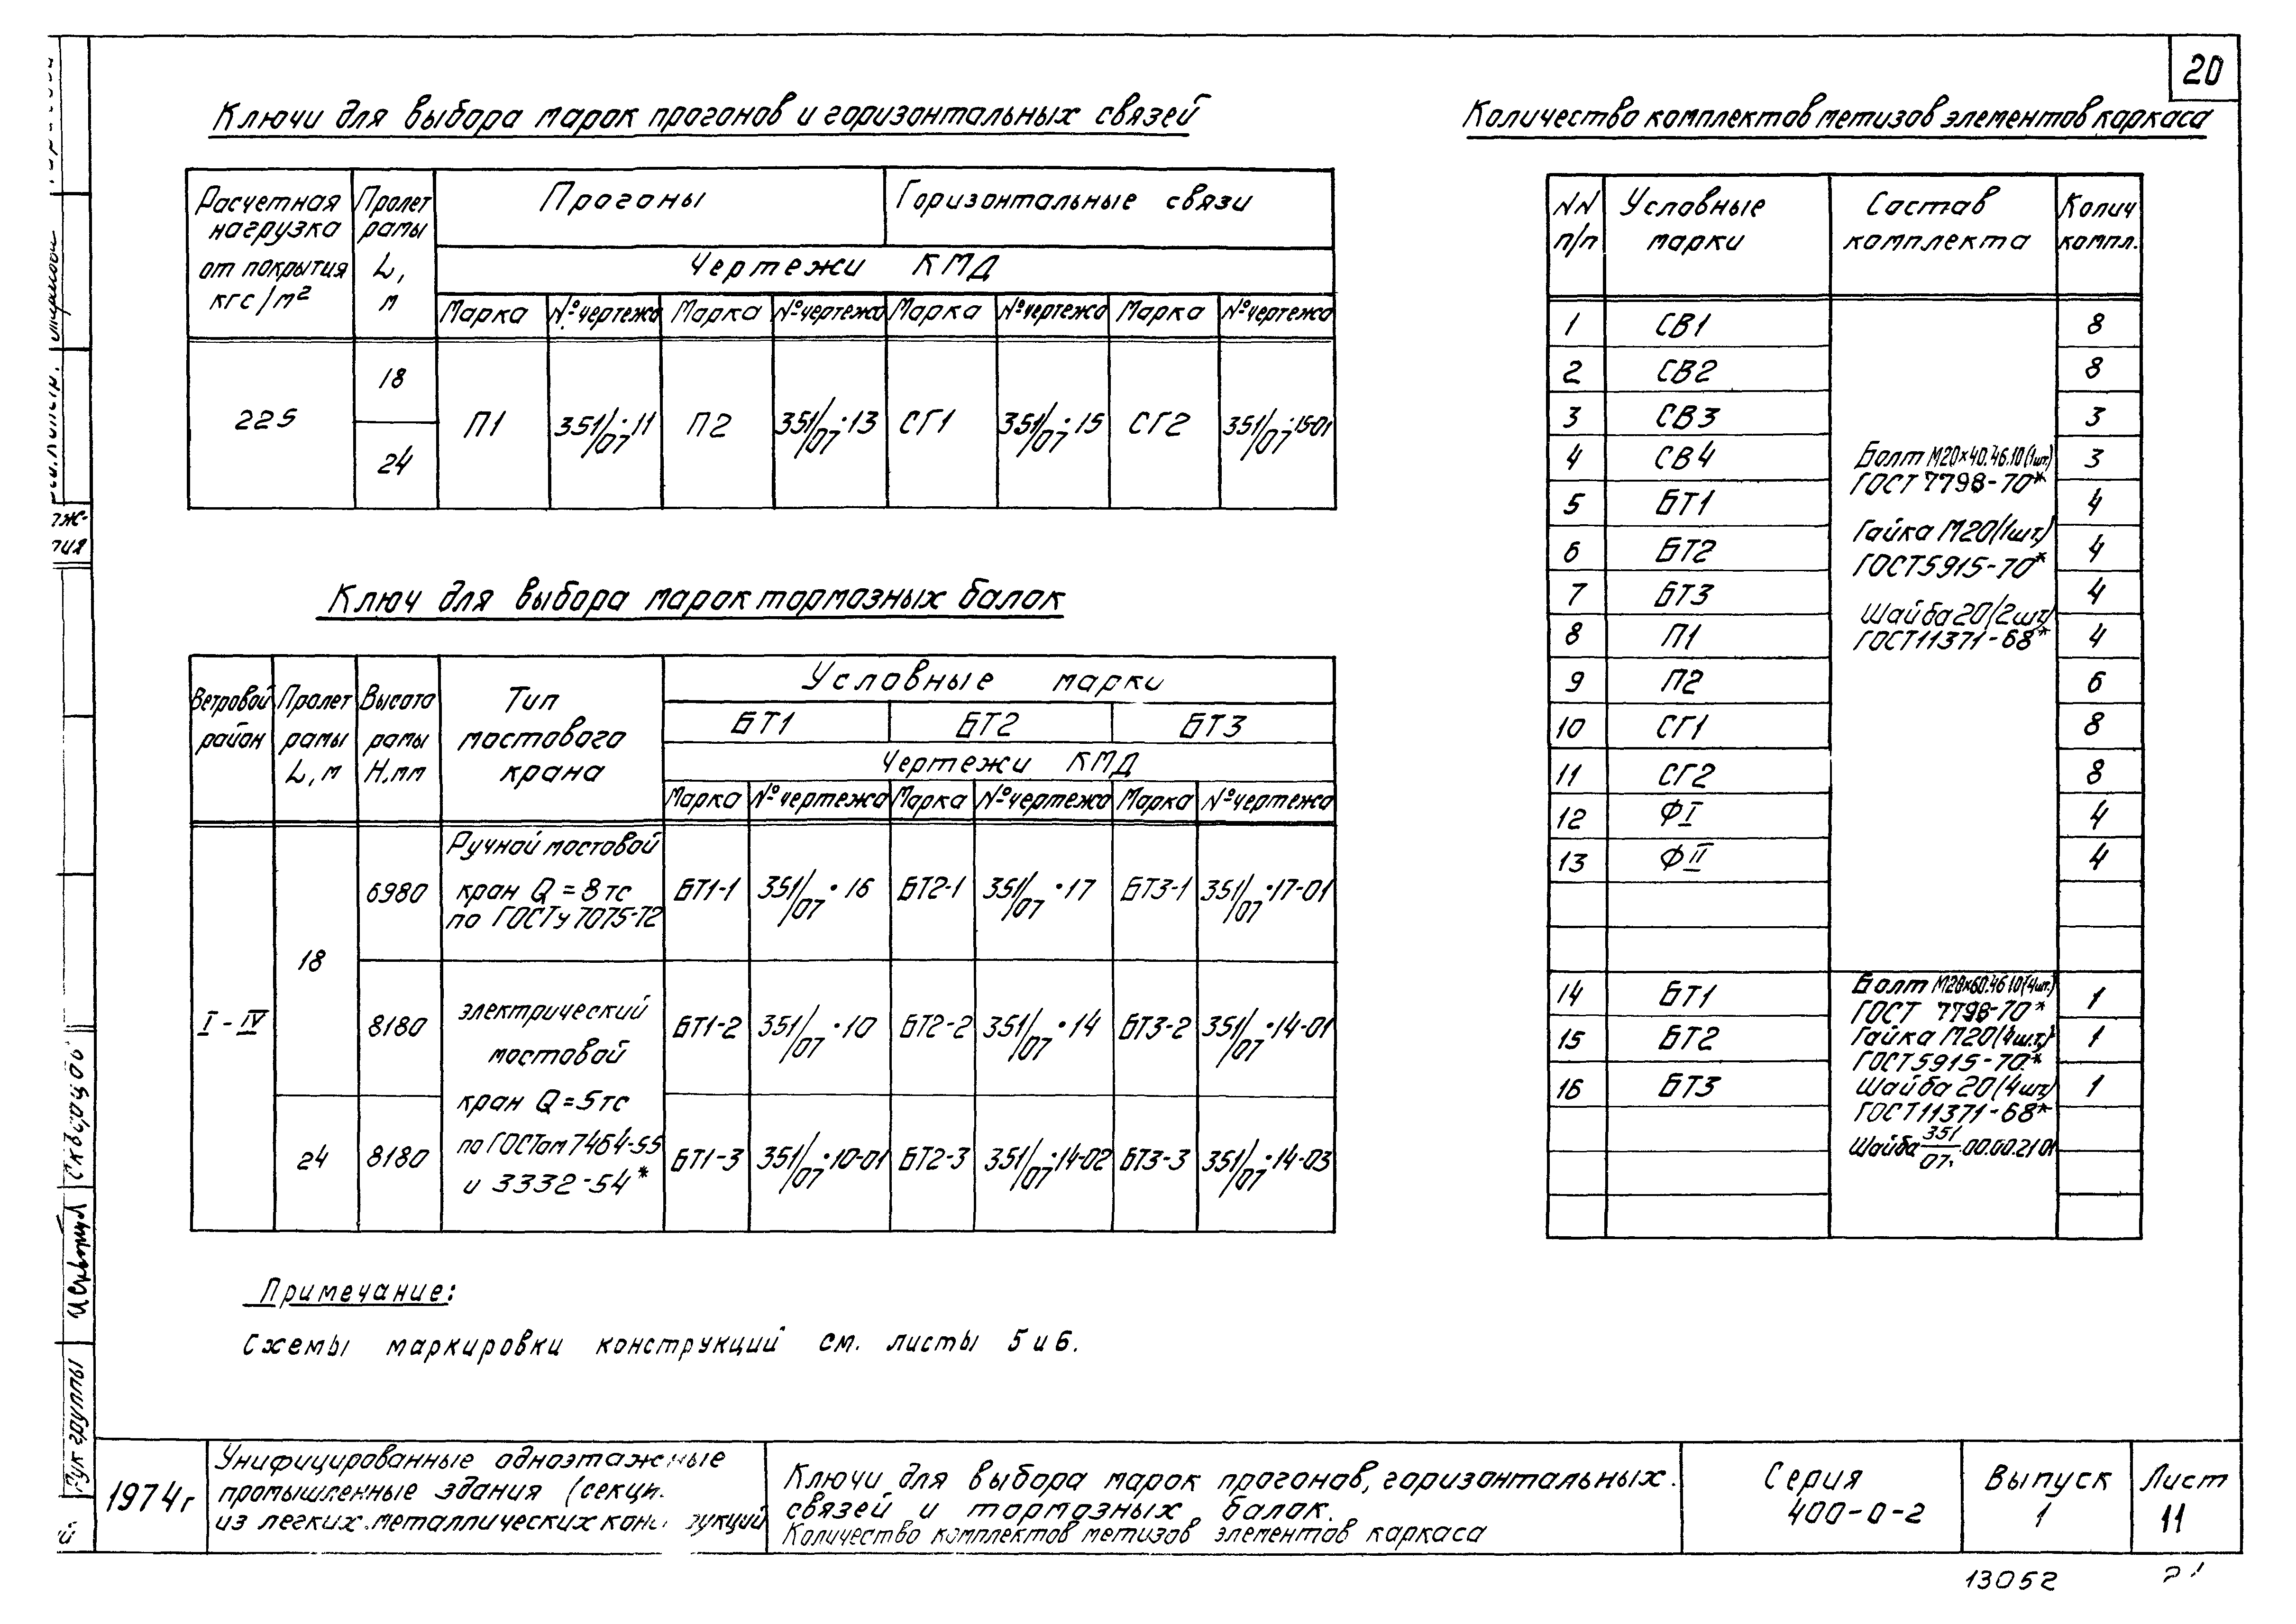 20
Ключи для выбора марок прогонов и горизонтальных связей
Расчетная нагрузка от покрытия кгс/м² Пролет рамы L, м Прогоны Горизонтальные связи
Чертежи КМД
Марка №чертежа Марка №чертежа Марка №чертежа Марка №чертежа
225 18 24 П1 351/07·11 П2 351/07·13 СГ1 351/07·15 СГ2 351/07·15-01
Ключ для выбора марок тормозных балок
Ветровой район Пролет рамы L, м Высота рамы Н,мм Тип мостового крана Условные марки
БТ1 БТ2 БТ3
Чертежи КМД
Марка №чертежа Марка №чертежа Марка №чертежа
I-IV
18
6980 Ручной мостовой кран Q=8тс по ГОСТу 7075-72 БТ1-1 351/07·16 БТ2-1 351/07·17 БТ3-1 351/07·17-01
8180 электрический мостовой кран Q=5тс по ГОСТам 7464-55 и 3332-54* БТ1-2 351/07·10 БТ2-2 351/07·14 БТ3-2 351/07·14-01
24 8180 БТ1-3 351/07·10-01 БТ2-3 351/07·14-02 БТ3-3 351/07·14-03
Примечание:
Схемы маркировки конструкций см. листы 5 и 6.
Количество комплектов метизов элементов каркаса
NN п/п Условные марки Состав комплекта Колич компл.
1 СВ1 8
2 СВ2 8
3 СВ3 3
4 СВ4 3
5 БТ1 4
6 БТ2 4
7 БТ3 4
8 П1 4
9 П2 6
10 СГ1 8
11 СГ2 8
12 ФI 4
13 ФII 4
Болт М20×40.46.10(1шт.)
ГОСТ 7798-70*
Гайка М20(1шт.)
ГОСТ5915-70*
Шайба 20(2шт)
ГОСТ11371-68*
14 БТ1 1
15 БТ2 1
16 БТ3 1
Болт М20×60.46.10(4шт.)
ГОСТ 7798-70*
Гайка М20(4шт.)
ГОСТ5915-70*
Шайба 20(4шт)
ГОСТ11371-68*
Шайба 351/07.00.00.21 01
1974г
Унифицированные одноэтажные
промышленные здания (секци.
из легких металлических конс рукций
Ключи для выбора марок прогонов, горизонтальных.
связей и тормозных балок.
Количество комплектов метизов элементов каркаса
Серия
400-0-2
Выпуск
1
Лист
11
13052
Рук группы
Скворцов